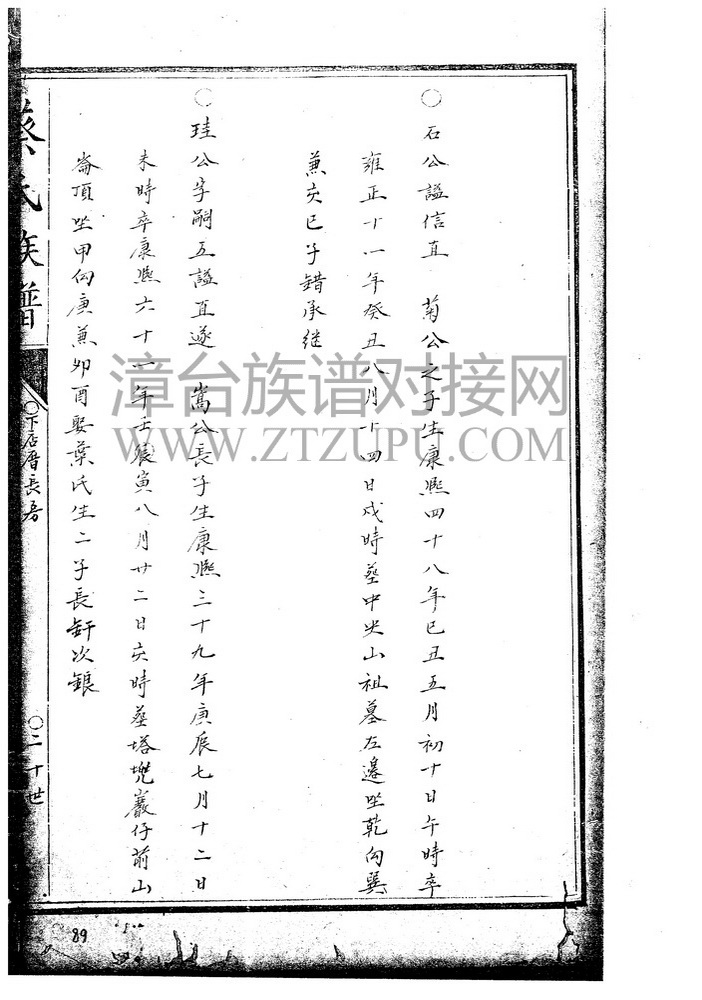 ○石公謚信直　菊公之子生康熙四十八年巳丑五月初十日午時卒
雍正十一年癸丑八月十四日戌時葬中央山祖墓左邊坐乾向巽
兼亥巳子錯承继
○珪公字嗣五謚直遂　嵩公長子生康熙三十九年庚辰七月十二日
未時卒康熙六十一年壬寅八月廿二日亥時葬塔兠巖仔前山
崙頂坐甲向庚兼卯酉娶葉氏生二子長釬次鋃
蔡氏族譜
○下店厝長房
○二十世
89
漳台族谱对接网
WWW.ZTZUPU.COM